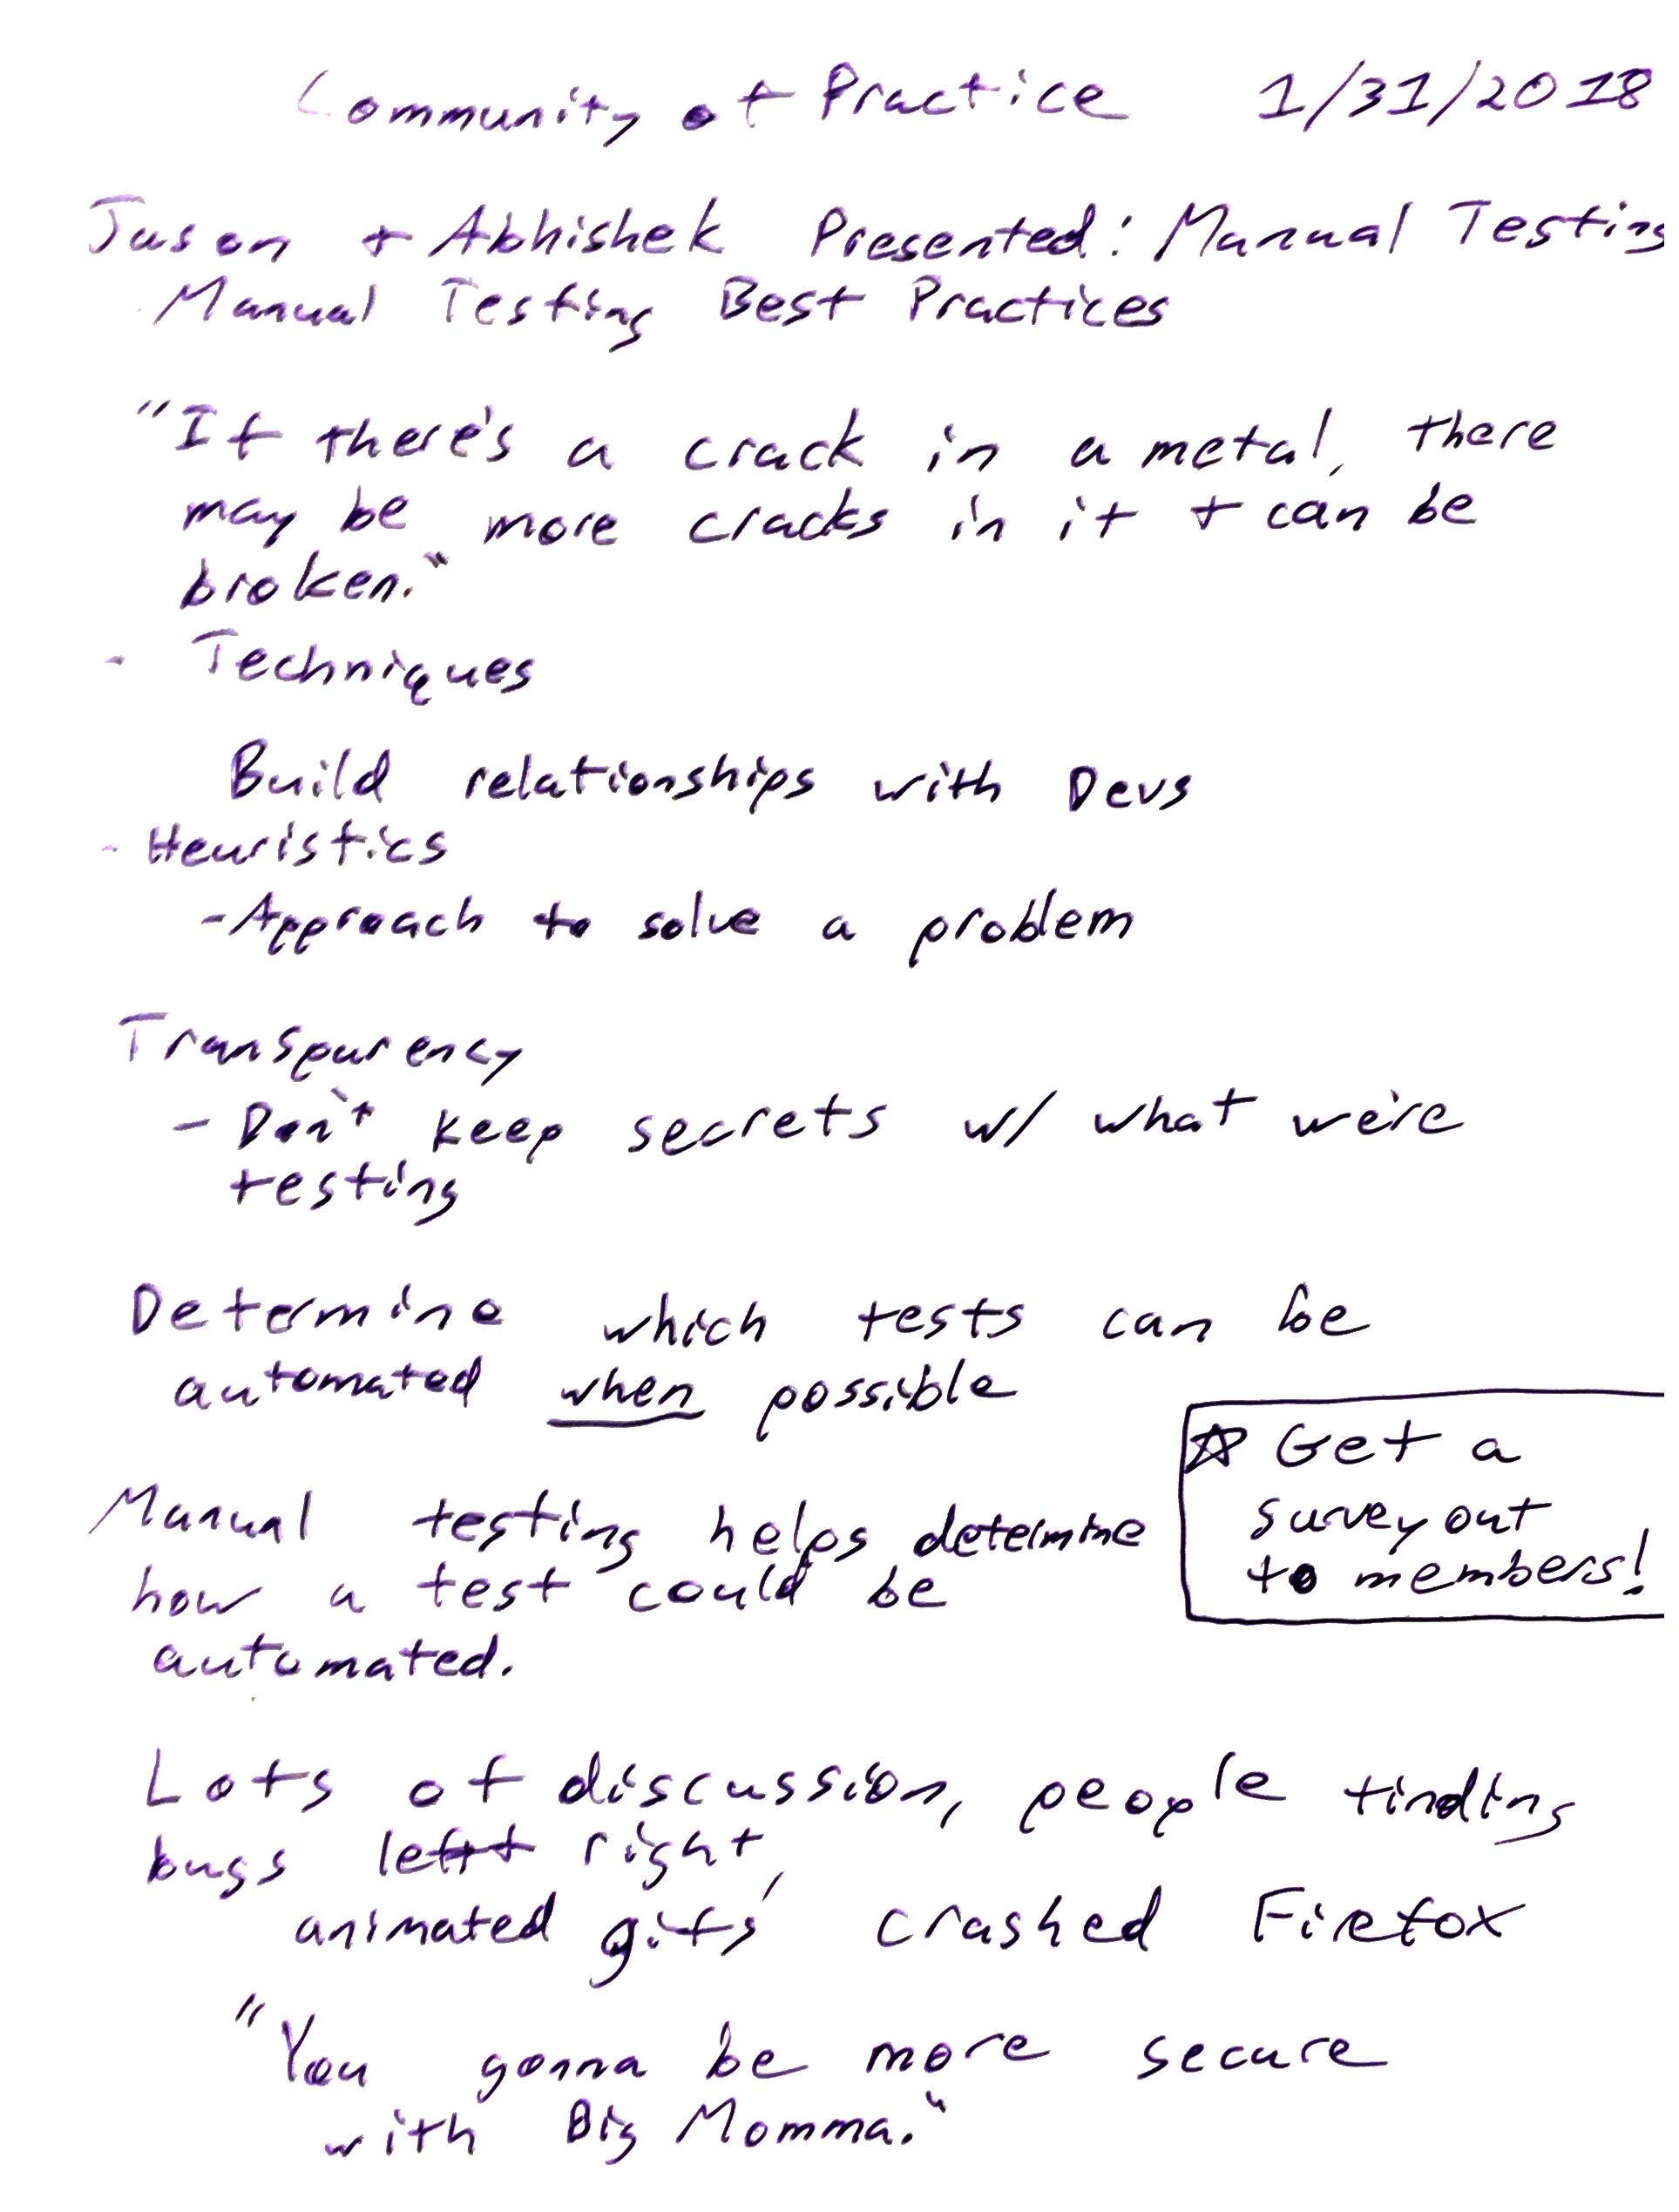 Community of Practice 1/31/2018
Jason + Abhishek Presented: Manual Testing
Manual Testing Best Practices
"If there's a crack in a metal, there
may be more cracks in it + can be
broken."
- Techniques
Build relationships with Devs
- Heuristics
- Approach to solve a problem
Transparency
- Don't keep secrets w/ what we're
testing
Determine which tests can be
automated when possible
☆ Get a
survey out
to members!
Manual testing helps determine
how a test could be
automated.
Lots of discussion, people finding
bugs left right,
animated gifs crashed Firefox
"You gonna be more secure
with Big Momma."